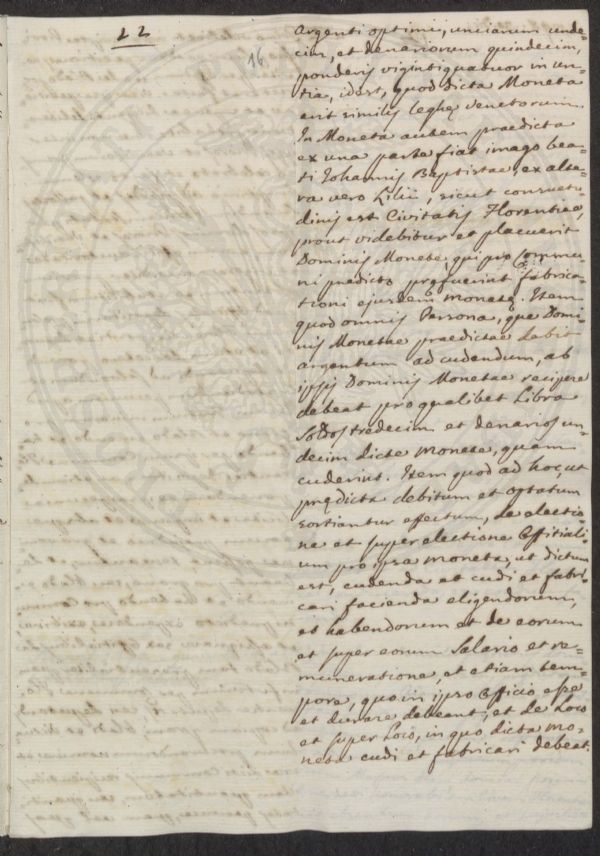 22
16
Argenti optimi, unciarum unde=
cim, et denariorum quindecim,
ponderis vigintiquatuor in un=
tia, idest, quod dicta Moneta
erit similis leghę Venetorum.
In Moneta autem praedicta
ex una parte fiat imago bea=
ti Iohannis Baptistae, ex alte=
ra vero Lilii, sicut consuetu=
dinis est Civitatis Florentiae,
prout videbitur et placuerit
Dominis Monetę, qui pro Commu=
ni predicto pręfuerint fabrica=
tioni ejusdem monetę. Item
quod omnis Persona, que Domi=
nis Monetae praedictae dabit
argentum ad cudendum, ab
ipsis Dominis Monetae recipere
debeat pro qualibet Libra
Soldos tredecim et denarios un=
decim dicte monete, quam
cuderint. Item quod ad hoc, ut
prędicta debitum et optatum
sortiantur effectum, de electio=
ne et super electione Offitiali=
um pro ipsa moneta, ut dictum
est, cudenda et cudi et fabri=
cari facienda eligendorum,
et habendorum et de eorum
et super eorum Salario et re=
muneratione, et etiam tem=
pore, quo in ipso Officio esse
et durare debeant, et de Loco
et super Loco, in quo dicta mo=
neta cudi et fabricari debeat.